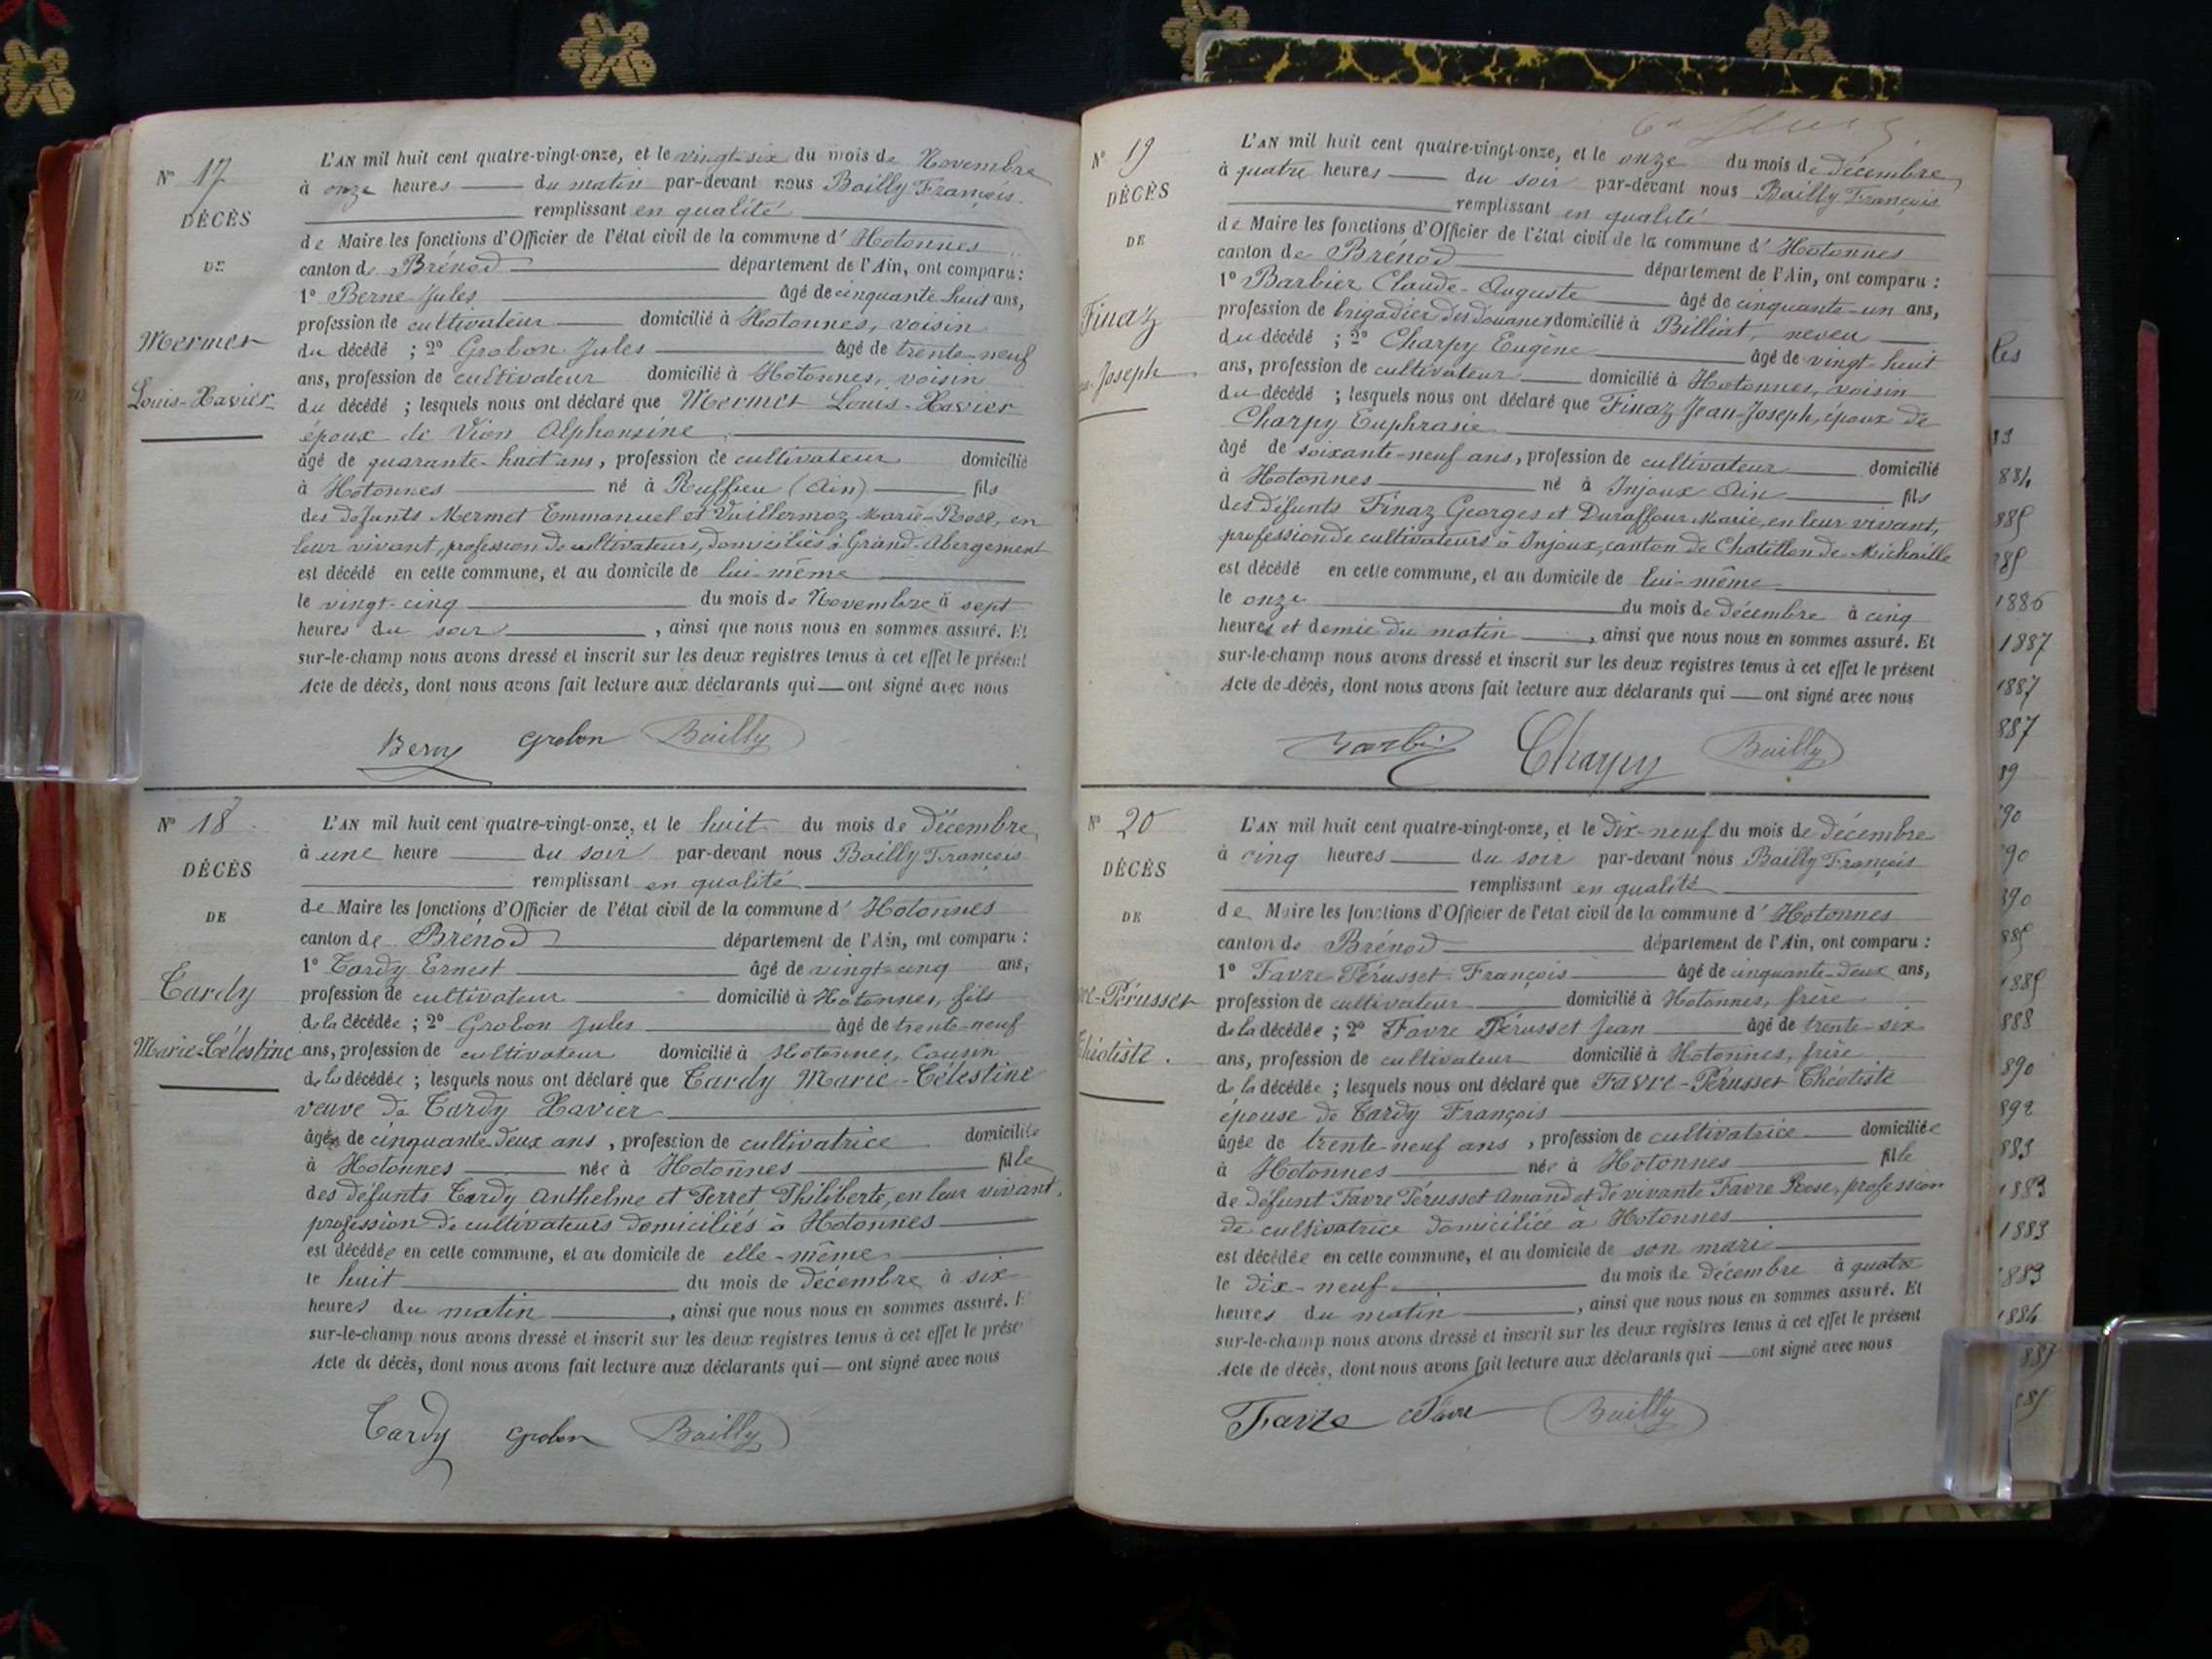 N° 17
DÉCÈS
DE
Mermet
Louis-Xavier
L'AN mil huit cent quatre-vingt-onze, et le vingt-six du mois de Novembre
à onze heures du matin par-devant nous Bailly François
remplissant en qualité
de Maire les fonctions d'Officier de l'état civil de la commune d'Hotonnes
canton de Brénod département de l'Ain, ont comparu :
1° Berne Jules âgé de cinquante-huit ans,
profession de cultivateur domicilié à Hotonnes, voisin
du décédé ; 2° Grobon Jules âgé de trente-neuf
ans, profession de cultivateur domicilié à Hotonnes, voisin
du décédé ; lesquels nous ont déclaré que Mermet Louis-Xavier
époux de Vion Alphonsine
âgé de quarante-huit ans, profession de cultivateur domicilié
à Hotonnes né à Ruffieu (Ain) fils
des défunts Mermet Emmanuel et Vuillermoz Marie-Rose, en
leur vivant, profession de cultivateurs, domiciliés à Grand-Abergement
est décédé en cette commune, et au domicile de lui-même
le vingt-cinq du mois de Novembre à sept
heures du soir, ainsi que nous nous en sommes assuré. Et
sur-le-champ nous avons dressé et inscrit sur les deux registres tenus à cet effet le présent
Acte de décès, dont nous avons fait lecture aux déclarants qui — ont signé avec nous
Berne Grobon Bailly
N° 18
DÉCÈS
DE
Tardy
Marie-Célestine
L'AN mil huit cent quatre-vingt-onze, et le huit du mois de décembre
à une heure du soir par-devant nous Bailly François
remplissant en qualité
de Maire les fonctions d'Officier de l'état civil de la commune d'Hotonnes
canton de Brénod département de l'Ain, ont comparu :
1° Tardy Ernest âgé de vingt-cinq ans,
profession de cultivateur domicilié à Hotonnes, fils
de la décédée ; 2° Grobon Jules âgé de trente-neuf
ans, profession de cultivateur domicilié à Hotonnes, Cousin
de la décédée ; lesquels nous ont déclaré que Tardy Marie-Célestine
veuve de Tardy Xavier
âgée de cinquante-deux ans, profession de cultivatrice domiciliée
à Hotonnes née à Hotonnes fille
des défunts Tardy Anthelme et Perret Philiberte, en leur vivant,
profession de cultivateurs domiciliés à Hotonnes
est décédée en cette commune, et au domicile de elle-même
le huit du mois de décembre à six
heures du matin, ainsi que nous nous en sommes assuré. E
sur-le-champ nous avons dressé et inscrit sur les deux registres tenus à cet effet le prése
Acte de décès, dont nous avons fait lecture aux déclarants qui — ont signé avec nous
Tardy Grobon Bailly
N° 19
DÉCÈS
DE
Finaz
Joseph
L'AN mil huit cent quatre-vingt-onze, et le onze du mois de décembre,
à quatre heures du soir par-devant nous Bailly François
remplissant en qualité
de Maire les fonctions d'Officier de l'état civil de la commune d'Hotonnes
canton de Brénod département de l'Ain, ont comparu :
1° Barbier Claude-Auguste âgé de cinquante-un ans,
profession de brigadier des douanes domicilié à Billiat, neveu
du décédé ; 2° Charpy Eugène âgé de vingt-huit
ans, profession de cultivateur domicilié à Hotonnes, voisin
du décédé ; lesquels nous ont déclaré que Finaz Jean-Joseph, époux de
Charpy Euphrasie
âgé de soixante-neuf ans, profession de cultivateur domicilié
à Hotonnes né à Injoux Ain fils
des défunts Finaz Georges et Duraffour Marie, en leur vivant,
profession de cultivateurs à Injoux, canton de Chatillon de Michaille
est décédé en cette commune, et au domicile de lui-même
le onze du mois de décembre à cinq
heures et demie du matin, ainsi que nous nous en sommes assuré. Et
sur-le-champ nous avons dressé et inscrit sur les deux registres tenus à cet effet le présent
Acte de décès, dont nous avons fait lecture aux déclarants qui — ont signé avec nous
Barbier Charpy Bailly
N° 20
DÉCÈS
DE
Pérusset
Théotiste.
L'AN mil huit cent quatre-vingt-onze, et le dix-neuf du mois de décembre
à cinq heures du soir par-devant nous Bailly François
remplissant en qualité
de Maire les fonctions d'Officier de l'état civil de la commune d'Hotonnes
canton de Brénod département de l'Ain, ont comparu :
1° Favre-Pérusset François âgé de cinquante-deux ans,
profession de cultivateur domicilié à Hotonnes, frère
de la décédée ; 2° Favre Pérusset Jean âgé de trente-six
ans, profession de cultivateur domicilié à Hotonnes, frère
de la décédée ; lesquels nous ont déclaré que Favre-Pérusset Théotiste
épouse de Tardy François
âgée de trente-neuf ans, profession de cultivatrice domiciliée
à Hotonnes née à Hotonnes fille
de défunt Favre Pérusset Amand et de vivante Favre Rose, profession
de cultivatrice domiciliée à Hotonnes
est décédée en cette commune, et au domicile de son mari
le dix-neuf du mois de décembre à quatre
heures du matin, ainsi que nous nous en sommes assuré. Et
sur-le-champ nous avons dressé et inscrit sur les deux registres tenus à cet effet le présent
Acte de décès, dont nous avons fait lecture aux déclarants qui — ont signé avec nous
Favre Favre Bailly
1886
1887
1887
887
89
90
90
890
889
1889
888
890
892
883
1883
1883
1883
1884